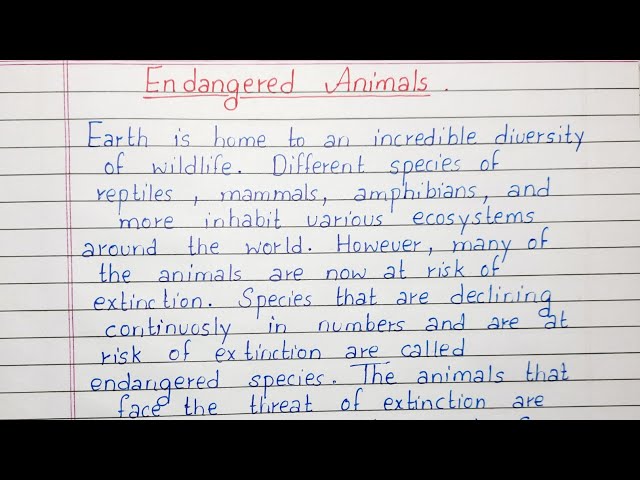 Endangered Animals.
Earth is home to an incredible diversity
of wildlife. Different species of
reptiles, mammals, amphibians, and
more inhabit various ecosystems
around the world. However, many of
the animals are now at risk of
extinction. Species that are declining
continuosly in numbers and are at
risk of extinction are called
endangered species. The animals that
face the threat of extinction are